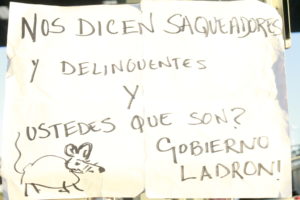 NOS DICEN SAQUEADORES
Y DELINCUENTES
Y
USTEDES QUE SON?
GOBIERNO
LADRON!